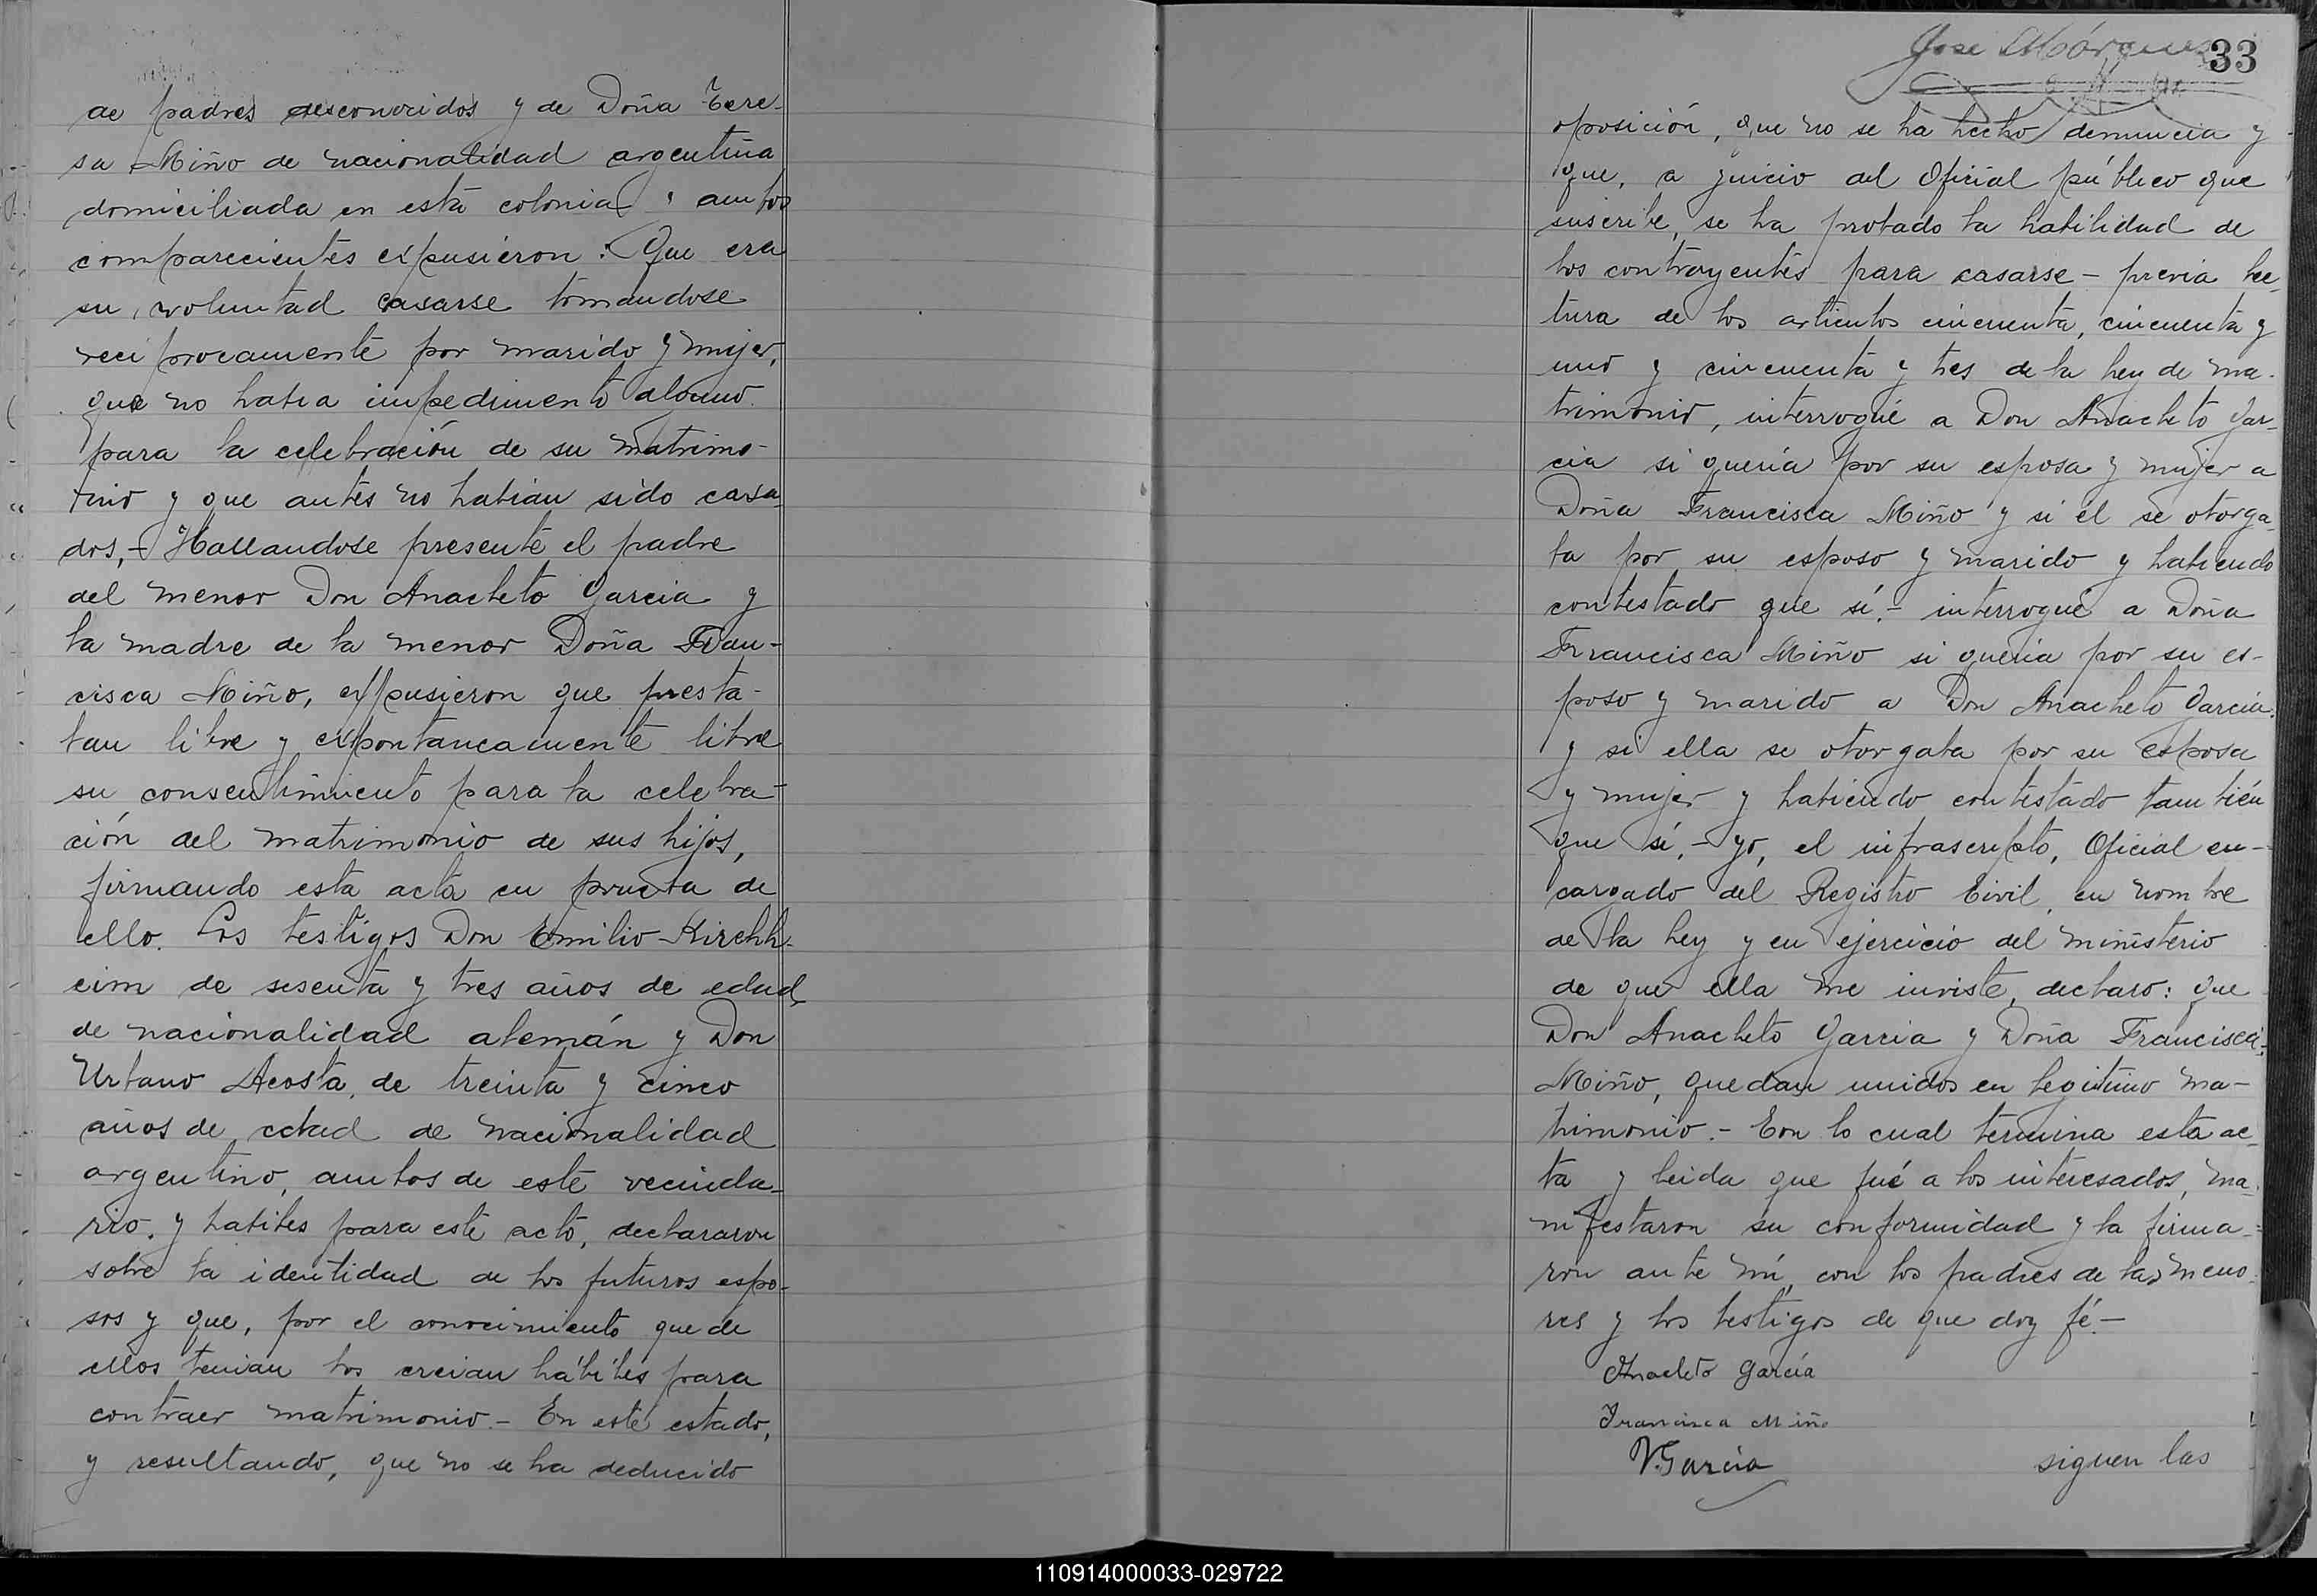 de padres desconocidos y de Doña Tere-
sa Miño de nacionalidad argentina
domiciliada en esta colonia; ambos
comparecientes expusieron: Que era
su voluntad casarse tomandose
reciprocamente por marido y mujer,
que no habia impedimento alguno
para la celebración de su matrimo-
nio y que antes no habian sido casa-
dos,- Hallandose presente el padre
del menor Don Anacleto Garcia y
la madre de la menor Doña Fran-
cisca Miño, expusieron que presta-
ban libre y expontaneamente libre
su consentimiento para la celebra-
ción del matrimonio de sus hijos,
firmando esta acta en prueba de
ello. Los testigos Don Emilio Kirchh-
eim de sesenta y tres años de edad,
de nacionalidad alemán y Don
Urbano Acosta, de treinta y cinco
años de edad de nacionalidad
argentino, ambos de este vecinda-
rio. y habiles para este acto, declararon
sobre la identidad de los futuros espo-
sos y que, por el conocimiento que de
ellos tenian los creian hábiles para
contraer matrimonio.- En este estado,
y resultando, que no se ha deducido
Jose
33
oposición, que no se ha hecho denuncia y
que, a juicio del Oficial público que
suscribe, se ha probado la habilidad de
los contrayentes para casarse - previa lec-
tura de los articulos cincuenta, cincuenta y
uno y cincuenta y tres de la ley de ma-
trimonio, interrogué a Don Anacleto Gar-
cia si queria por su esposa y mujer a
Doña Francisca Miño y si él se otorga-
ba por su esposo y marido y habiendo
contestado que sí.- interrogué a Doña
Francisca Miño si queria por su es-
poso y marido a Don Anacleto Garcia.
y si ella se otorgaba por su esposa
y mujer y habiendo contestado tambien
que sí,- yo, el infrascripto, Oficial en-
cargado del Registro Civil, en nombre
de la ley y en ejercicio del ministerio
de que ella me inviste, declaro: que
Don Anacleto Garcia y Doña Francisca
Miño, quedan unidos en legitimo ma-
trimonio.- Con lo cual termina esta ac-
ta y leida que fué a los interesados, ma-
nifestaron su conformidad y la firma-
ron ante mí, con los padres de los meno-
res y los testigos de que doy fé.-
Anacleto García
Francisca Miño
V. García
siguen las
110914000033-029722